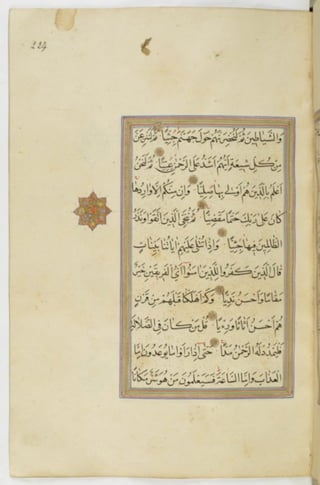 224
والشياطين ثم لنحضرنهم حول جهنم جثيا ثم لننزعن
من كل شيعة ايهم اشد على الرحمن عتيا ثم لنحن
اعلم بالذين هم اولى بها صليا وان منكم الا واردها
كان على ربك حتما مقضيا ثم ننجى الذين اتقوا ونذر
الظالمين فيها جثيا واذا تتلى عليهم اياتنا بينات
قال الذين كفروا للذين امنوا اى الفريقين خير
مقاما واحسن نديا وكم اهلكنا قبلهم من قرن
هم احسن اثاثا ورءيا قل من كان فى الضلالة
فليمدد له الرحمن مدا حتى اذا راوا ما يوعدون اما
العذاب واما الساعة فسيعلمون من هو شر مكانا